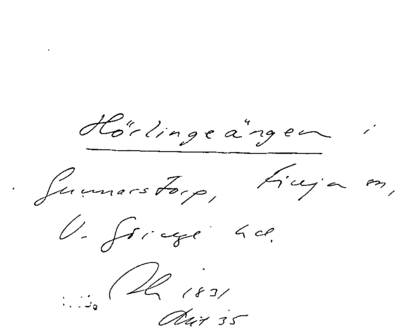 Hörlingeängen i
Gunnarstorp, Finja sn,
V. Göinge hd.
Rk 1831
Akt 35